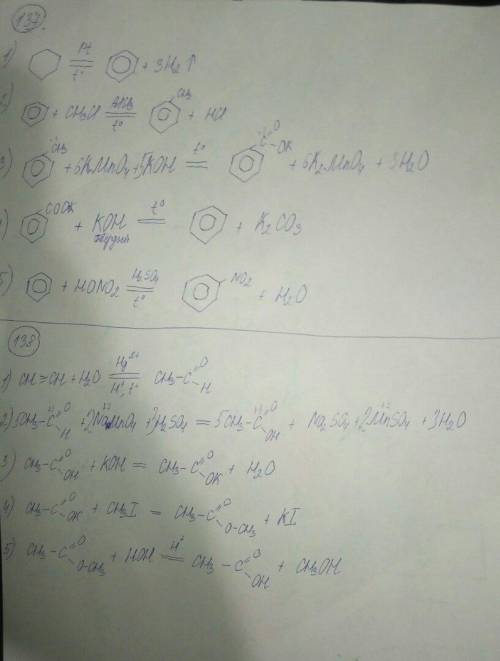 137.
1) Pt t° + 3H₂ ↑
+ CH₃Cl AlCl₃ t° CH₃ + HCl
3) CH₃ + 6KMnO₄ + KOH = t° C O OK + 6K₂MnO₄ + 5H₂O
COOK + KOH t° + K₂CO₃
5) + HONO₂ H₂SO₄ t° NO₂ + H₂O
138
1) CH≡CH + H₂O Hg²⁺ H⁺, t° CH₃-C O H
2) 5CH₃-C O H + 2NaMnO₄ + 3H₂SO₄ = 5CH₃-C O OH + Na₂SO₄ + 2MnSO₄ + 3H₂O
3) CH₃-C O OH + KOH = CH₃-C O OK + H₂O
4) CH₃-C O OK + CH₃I = CH₃-C O O-CH₃ + KI
5) CH₃-C O O-CH₃ + HOH H⁺ = CH₃-C O OH + CH₃OH